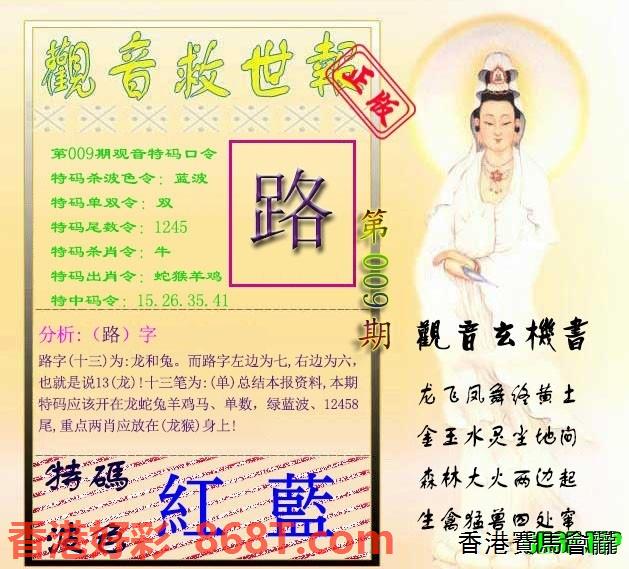 觀音救世報
正版
第009期观音特码口令
特码杀波色令：蓝波
特码单双令：双
特码尾数令：1245
特码杀肖令：牛
特码出肖令：蛇猴羊鸡
特中码令：15.26.35.41
路
第009期
分析:（路）字
路字(十三)为:龙和兔。而路字左边为七,右边为六,
也就是说13(龙)!十三笔为:(单)总结本报资料,本期
特码应该开在龙蛇兔羊鸡马、单数，绿蓝波、12458
尾,重点两肖应放在(龙猴)身上!
特碼
波色
紅 藍
香港好彩 8687.com
觀音玄機書
龙飞凤舞终黄土
金玉水灵尘地间
森林大火两边起
生禽猛兽四处窜
香港賽馬會